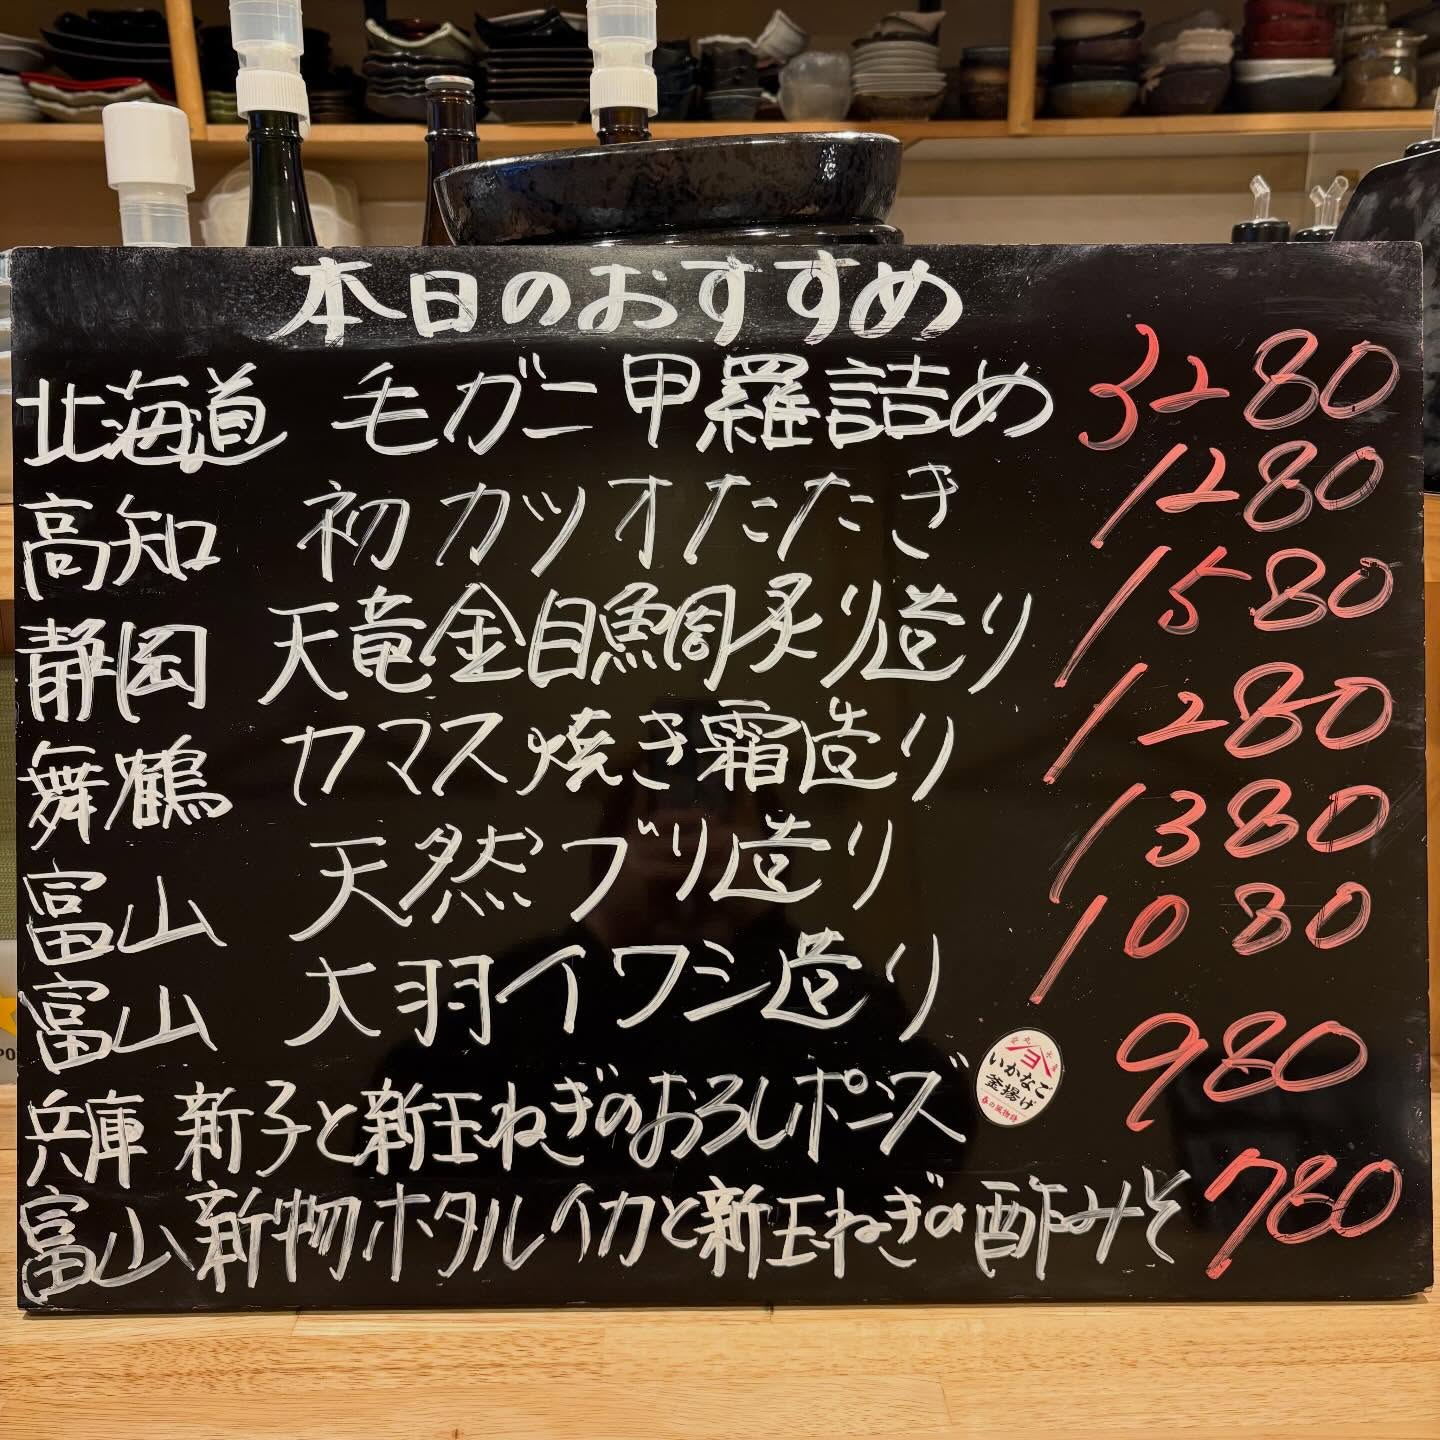 本日のおすすめ
北海道 毛ガニ甲羅詰め 3280
高知 初カツオたたき 1280
静岡 天竜金目鯛炙り造り 1580
舞鶴 カマス焼き霜造り 1280
富山 天然ブリ造り 1380
富山 大羽イワシ造り 1080
兵庫 新子と新玉ねぎのおろしポンズ 980
いかなご
釜揚げ
春の風物詩
富山 新物ホタルイカと新玉ねぎの酢みそ 780